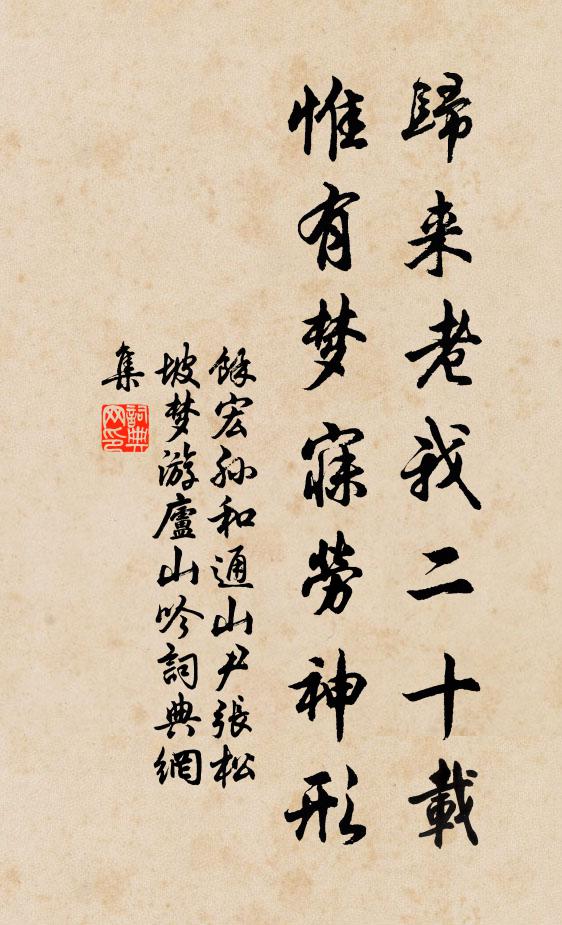 歸来老我二十載
惟有梦寐勞神形
餘宏孙和通山尹張松
坡梦游廬山吟詞典網
集
詞典
网印